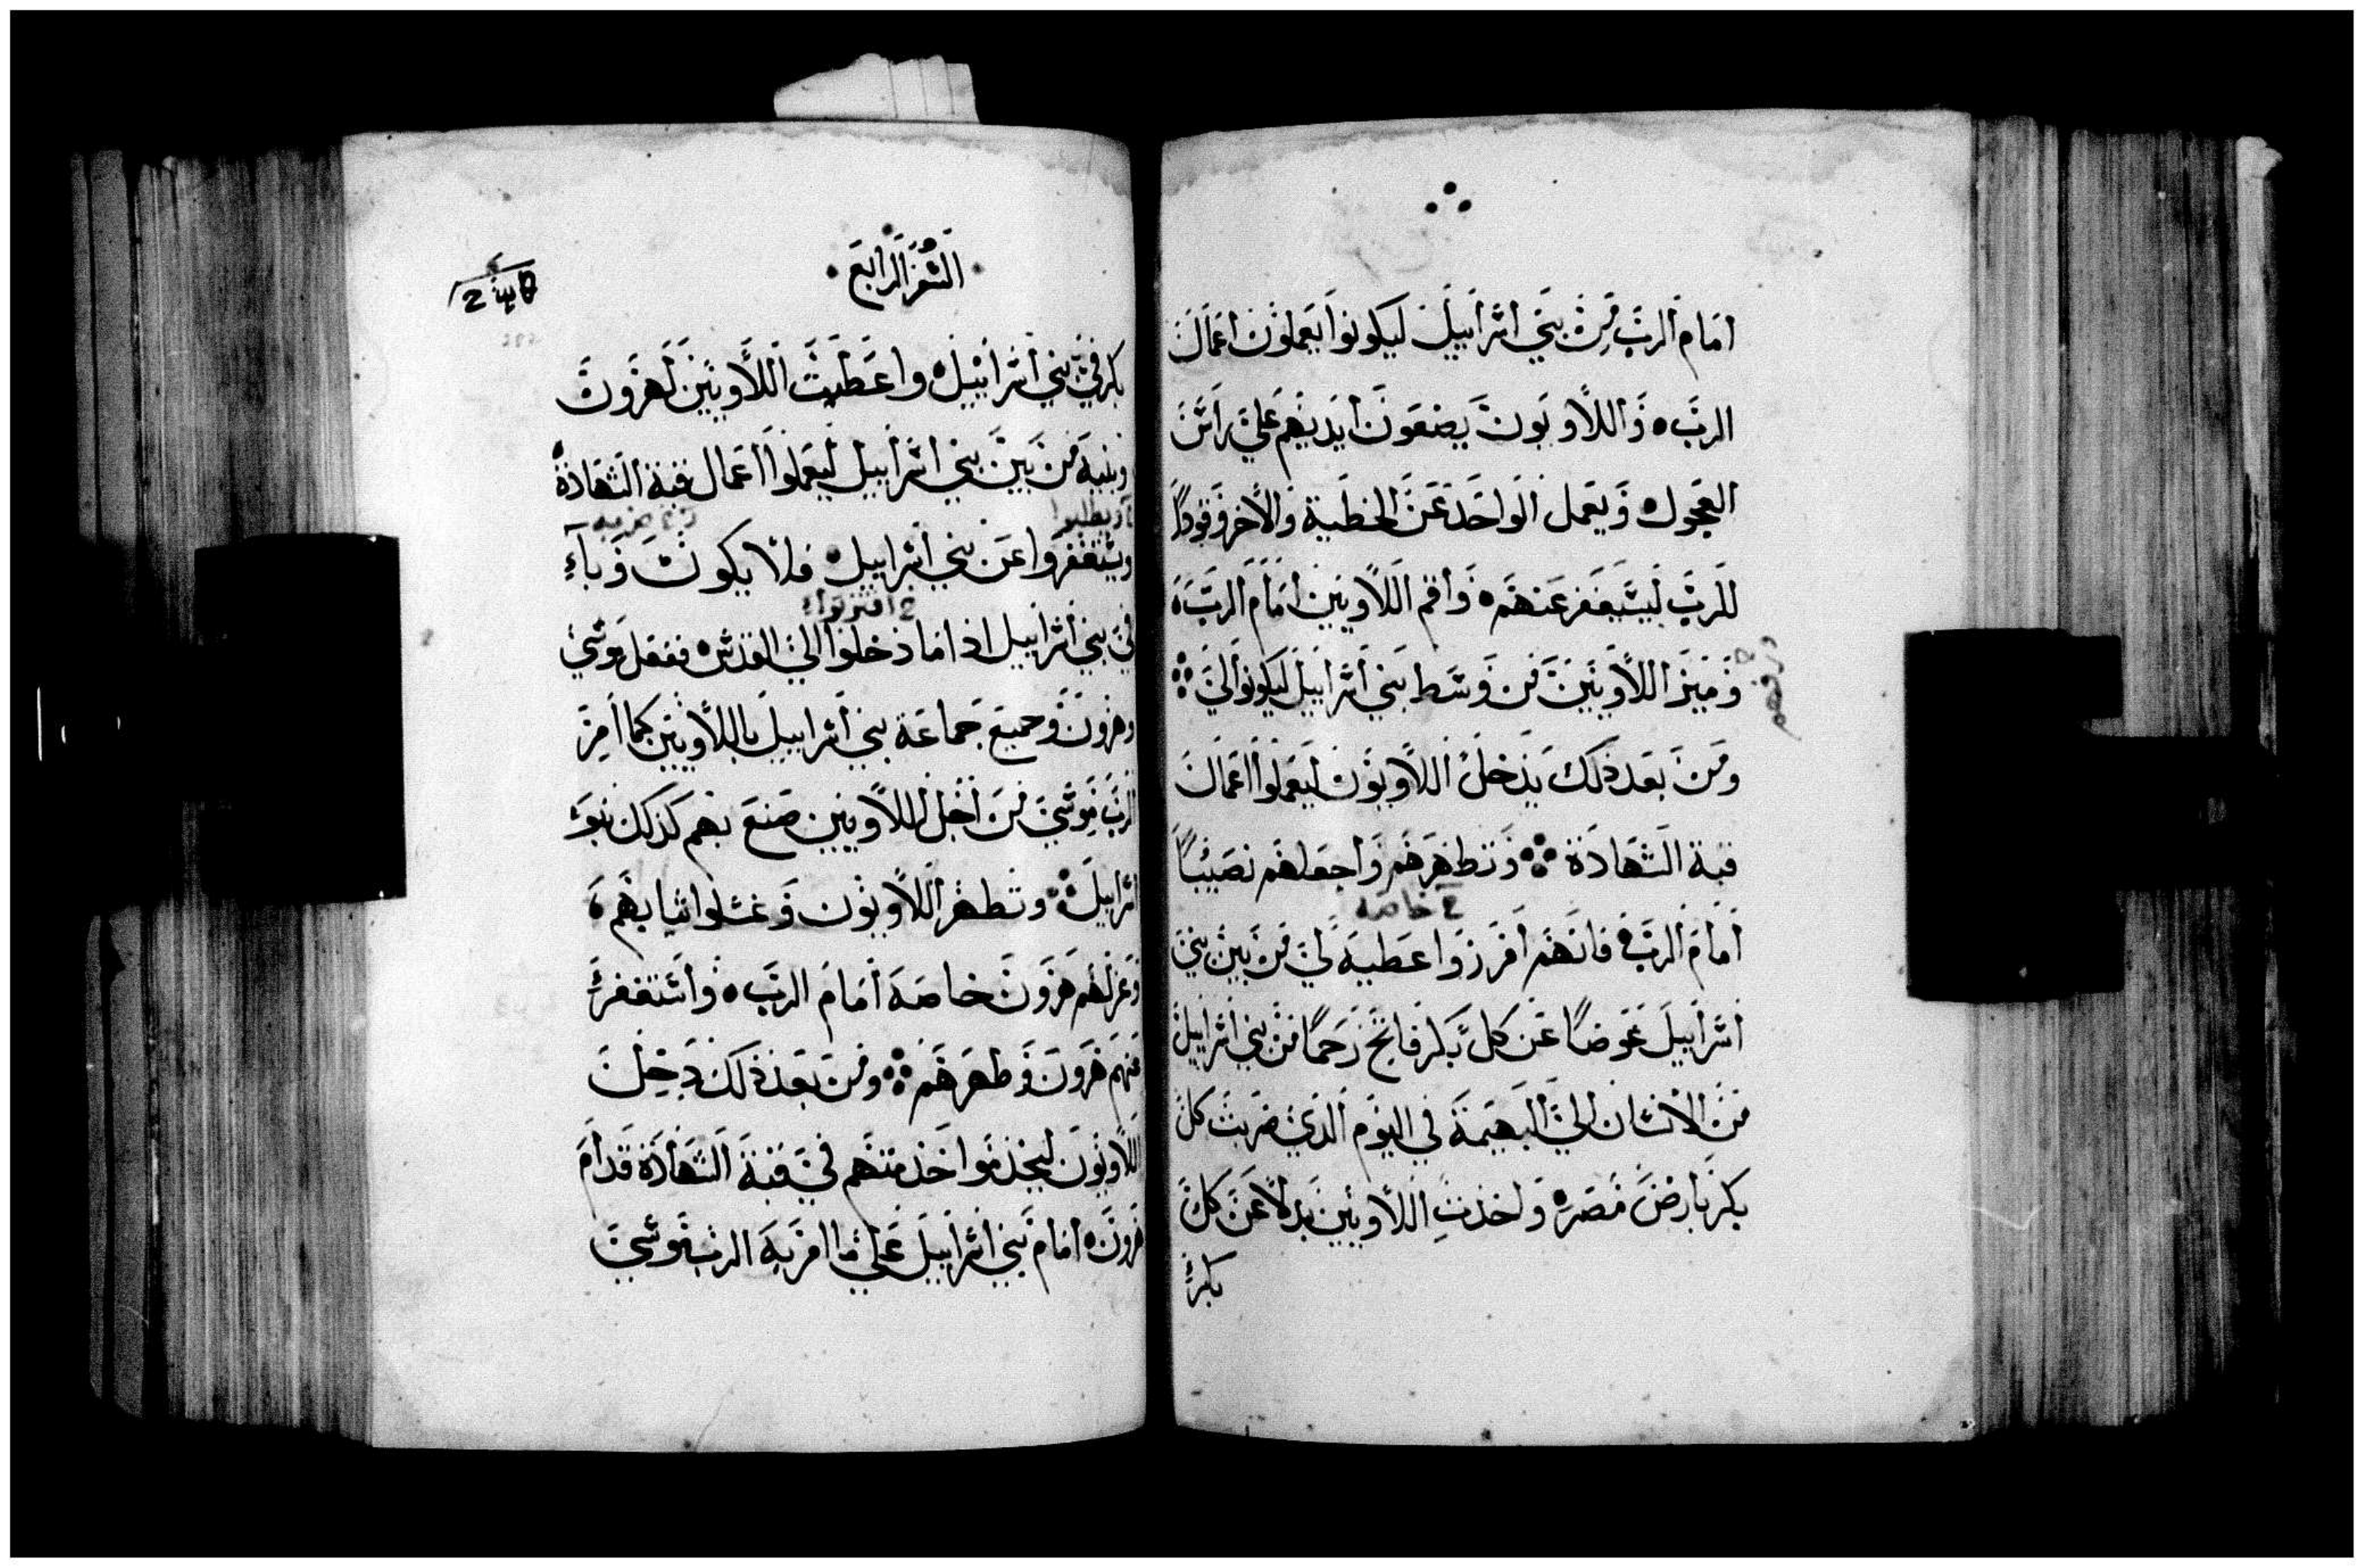 امام الرب من بني اسرابيل ليكونوا يعملون اعمال
الرب ه واللاويون يضعون ايديهم على راس
العجول ه ويعمل الواحد عن الخطية والاخر وقودًا
للرب ليستغفر عنهم ه واقم اللاويين امام الرب ه
وميز اللاويين من وسط بني اسرابيل ليكونوا لي
ومن بعد ذلك يدخل اللاويون ليعملوا اعمال
قبة الشهادة وتطهرهم واجعلهم نصيبًا
خ خاصه
امام الرب فانهم افرزوا عطية لي من بين بني
اسرابيل عوضًا عن كل بكر فاتح رحمًا من بني اسرابيل
من الانسان الي البهيمة في اليوم الذي ضربت كل
بكر بارض مصر ه واخذت اللاويين بدلًا عن كل
بكر
السفر الرابع
بكر في بني اسرابيل ه واعطيت اللاويين لهرون
وبنيه من بين بني اسرابيل ليعملوا اعمال قبة الشهادة
ويستغفروا عن بني اسرابيل ه فلا يكون وباء
خ اقتربوا
في بني اسرابيل اذا ما دخلوا الي القدس ه ففعل موسي
وهرون وجميع جماعة بني اسرابيل باللاويين كما امر
الرب موسي من اجل اللاويين صنع بهم كذلك بنو
اسرابيل وتطهر اللاويون وغسلوا ثيابهم ه
وعزلهم هرون خاصه امام الرب ه واستغفر
عنهم هرون وطهرهم ومن بعد ذلك دخل
اللاويون ليخدموا خدمتهم في قبة الشهادة قدام
هرون ه امام بني اسرابيل علي ما امر به الرب موسي